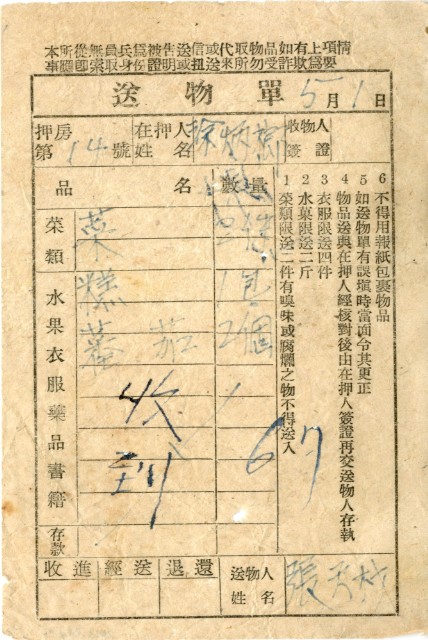 本所從無員兵爲被告送信或代取物品如有上項情
事應卽索取身份證明或扭送來所勿受詐欺爲要
送物單 5月1日
押房第14號 在押人姓名 徐炳 收物人簽證
品名 數量
菜類
水果
衣服
藥品
書籍
存款
菜 2
糕 1包
蕃茄 2個
收到
1
67
1 菜類限送二件有臭味或腐爛之物不得送入
2 水菓限送二斤
3 衣服限送四件
4 物品送與在押人經核對後由在押人簽證再交送物人存執
5 如送物單有誤填時當面令其更正
6 不得用報紙包裹物品
收進 經送 退還 送物人姓名 張